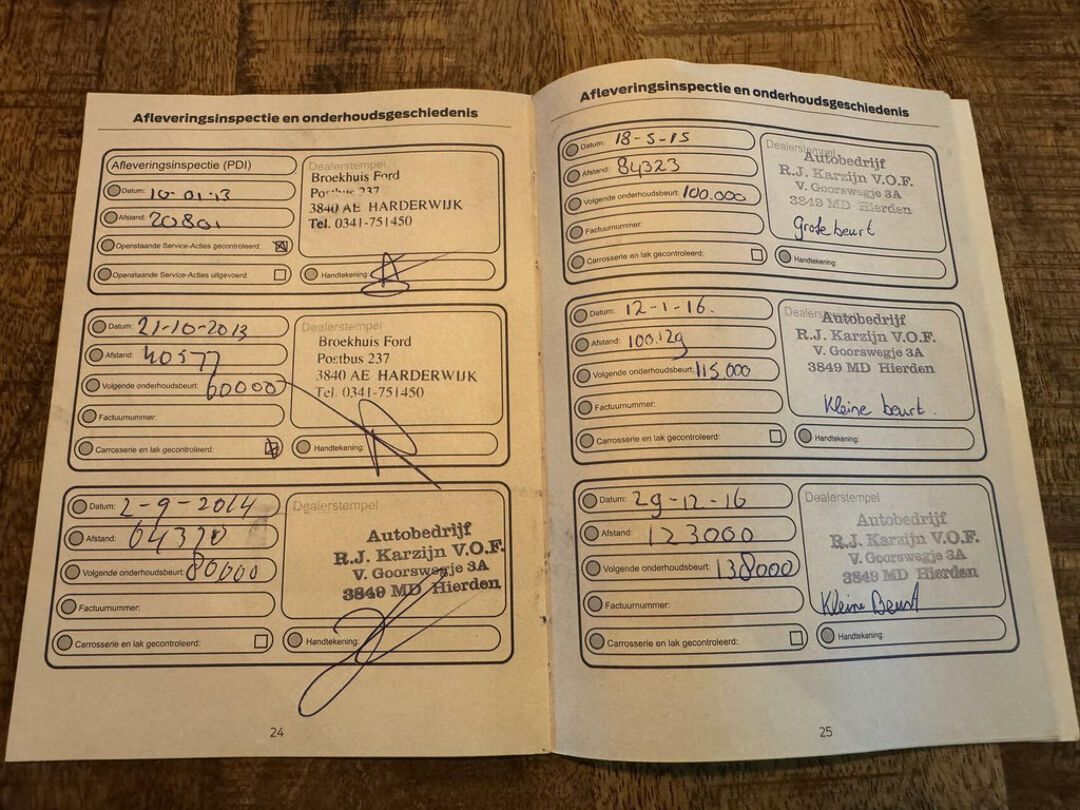 Afleveringsinspectie en onderhoudsgeschiedenis
Afleveringsinspectie (PDI)
Datum: 10-01-13
Afstand: 20801
Openstaande Service-Acties gecontroleerd:
Openstaande Service-Acties uitgevoerd:
Dealerstempel
Broekhuis Ford
Postbus 237
3840 AE HARDERWIJK
Tel. 0341-751450
Handtekening:
Datum: 21-10-2013
Afstand: 40577
Volgende onderhoudsbeurt: 60000
Factuurnummer:
Carrosserie en lak gecontroleerd:
Dealerstempel
Broekhuis Ford
Postbus 237
3840 AE HARDERWIJK
Tel. 0341-751450
Handtekening:
Datum: 2-9-2014
Afstand: 64320
Volgende onderhoudsbeurt: 80000
Factuurnummer:
Carrosserie en lak gecontroleerd:
Dealerstempel
Autobedrijf
R.J. Karzijn V.O.F.
V. Goorswegje 3A
3849 MD Hierden
Handtekening:
24
Afleveringsinspectie en onderhoudsgeschiedenis
Datum: 18-5-15
Afstand: 84323
Volgende onderhoudsbeurt: 100.000
Factuurnummer:
Carrosserie en lak gecontroleerd:
Dealerstempel
Autobedrijf
R.J. Karzijn V.O.F.
V. Goorswegje 3A
3849 MD Hierden
Grote beurt
Handtekening:
Datum: 12-1-16.
Afstand: 100.129
Volgende onderhoudsbeurt: 115.000
Factuurnummer:
Carrosserie en lak gecontroleerd:
Dealerstempel
Autobedrijf
R.J. Karzijn V.O.F.
V. Goorswegje 3A
3849 MD Hierden
Kleine beurt.
Handtekening:
Datum: 29-12-16
Afstand: 123000
Volgende onderhoudsbeurt: 138000
Factuurnummer:
Carrosserie en lak gecontroleerd:
Dealerstempel
Autobedrijf
R.J. Karzijn V.O.F.
V. Goorswegje 3A
3849 MD Hierden
Kleine Beurt
Handtekening:
25